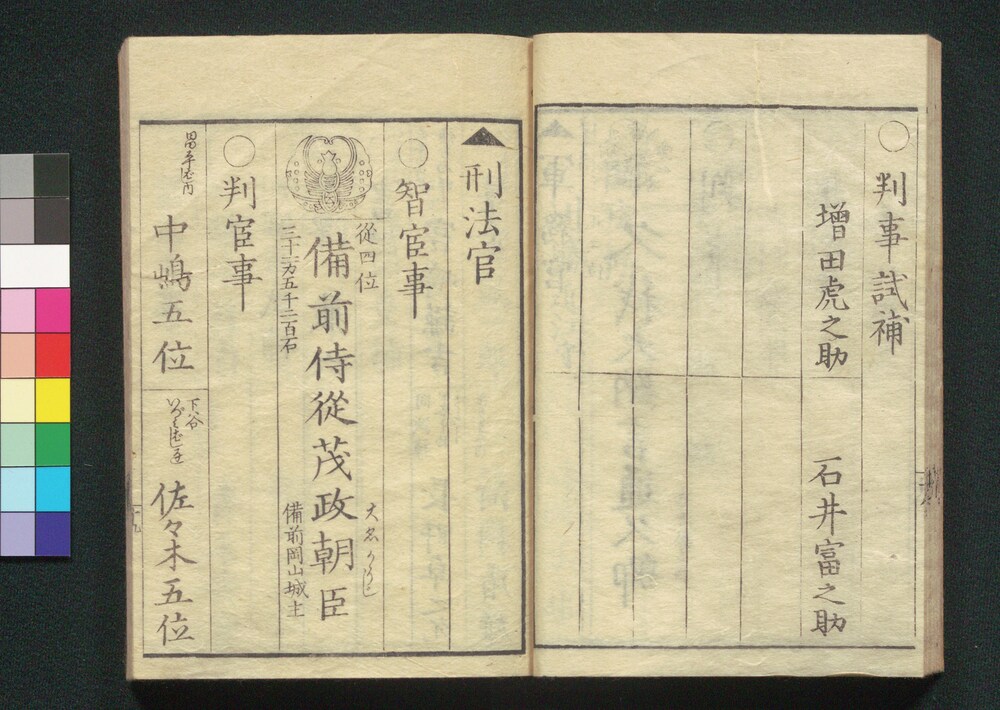 ○判事試補
増田虎之助
石井富之助
▲刑法官
○智官事
従四位
備前侍従茂政朝臣
三十一万五千二百石
備前岡山城主
○判官事
中嶋五位
下谷
佐々木五位